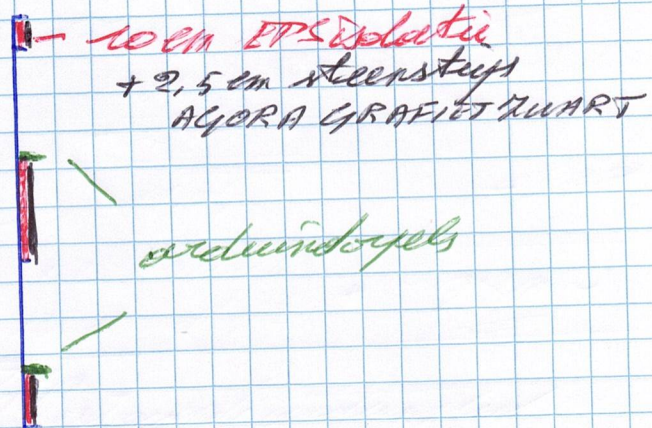 10 cm EPS isolatie
+ 2,5 cm steenstrips
AGORA GRAFIETZWART
arduindorpels